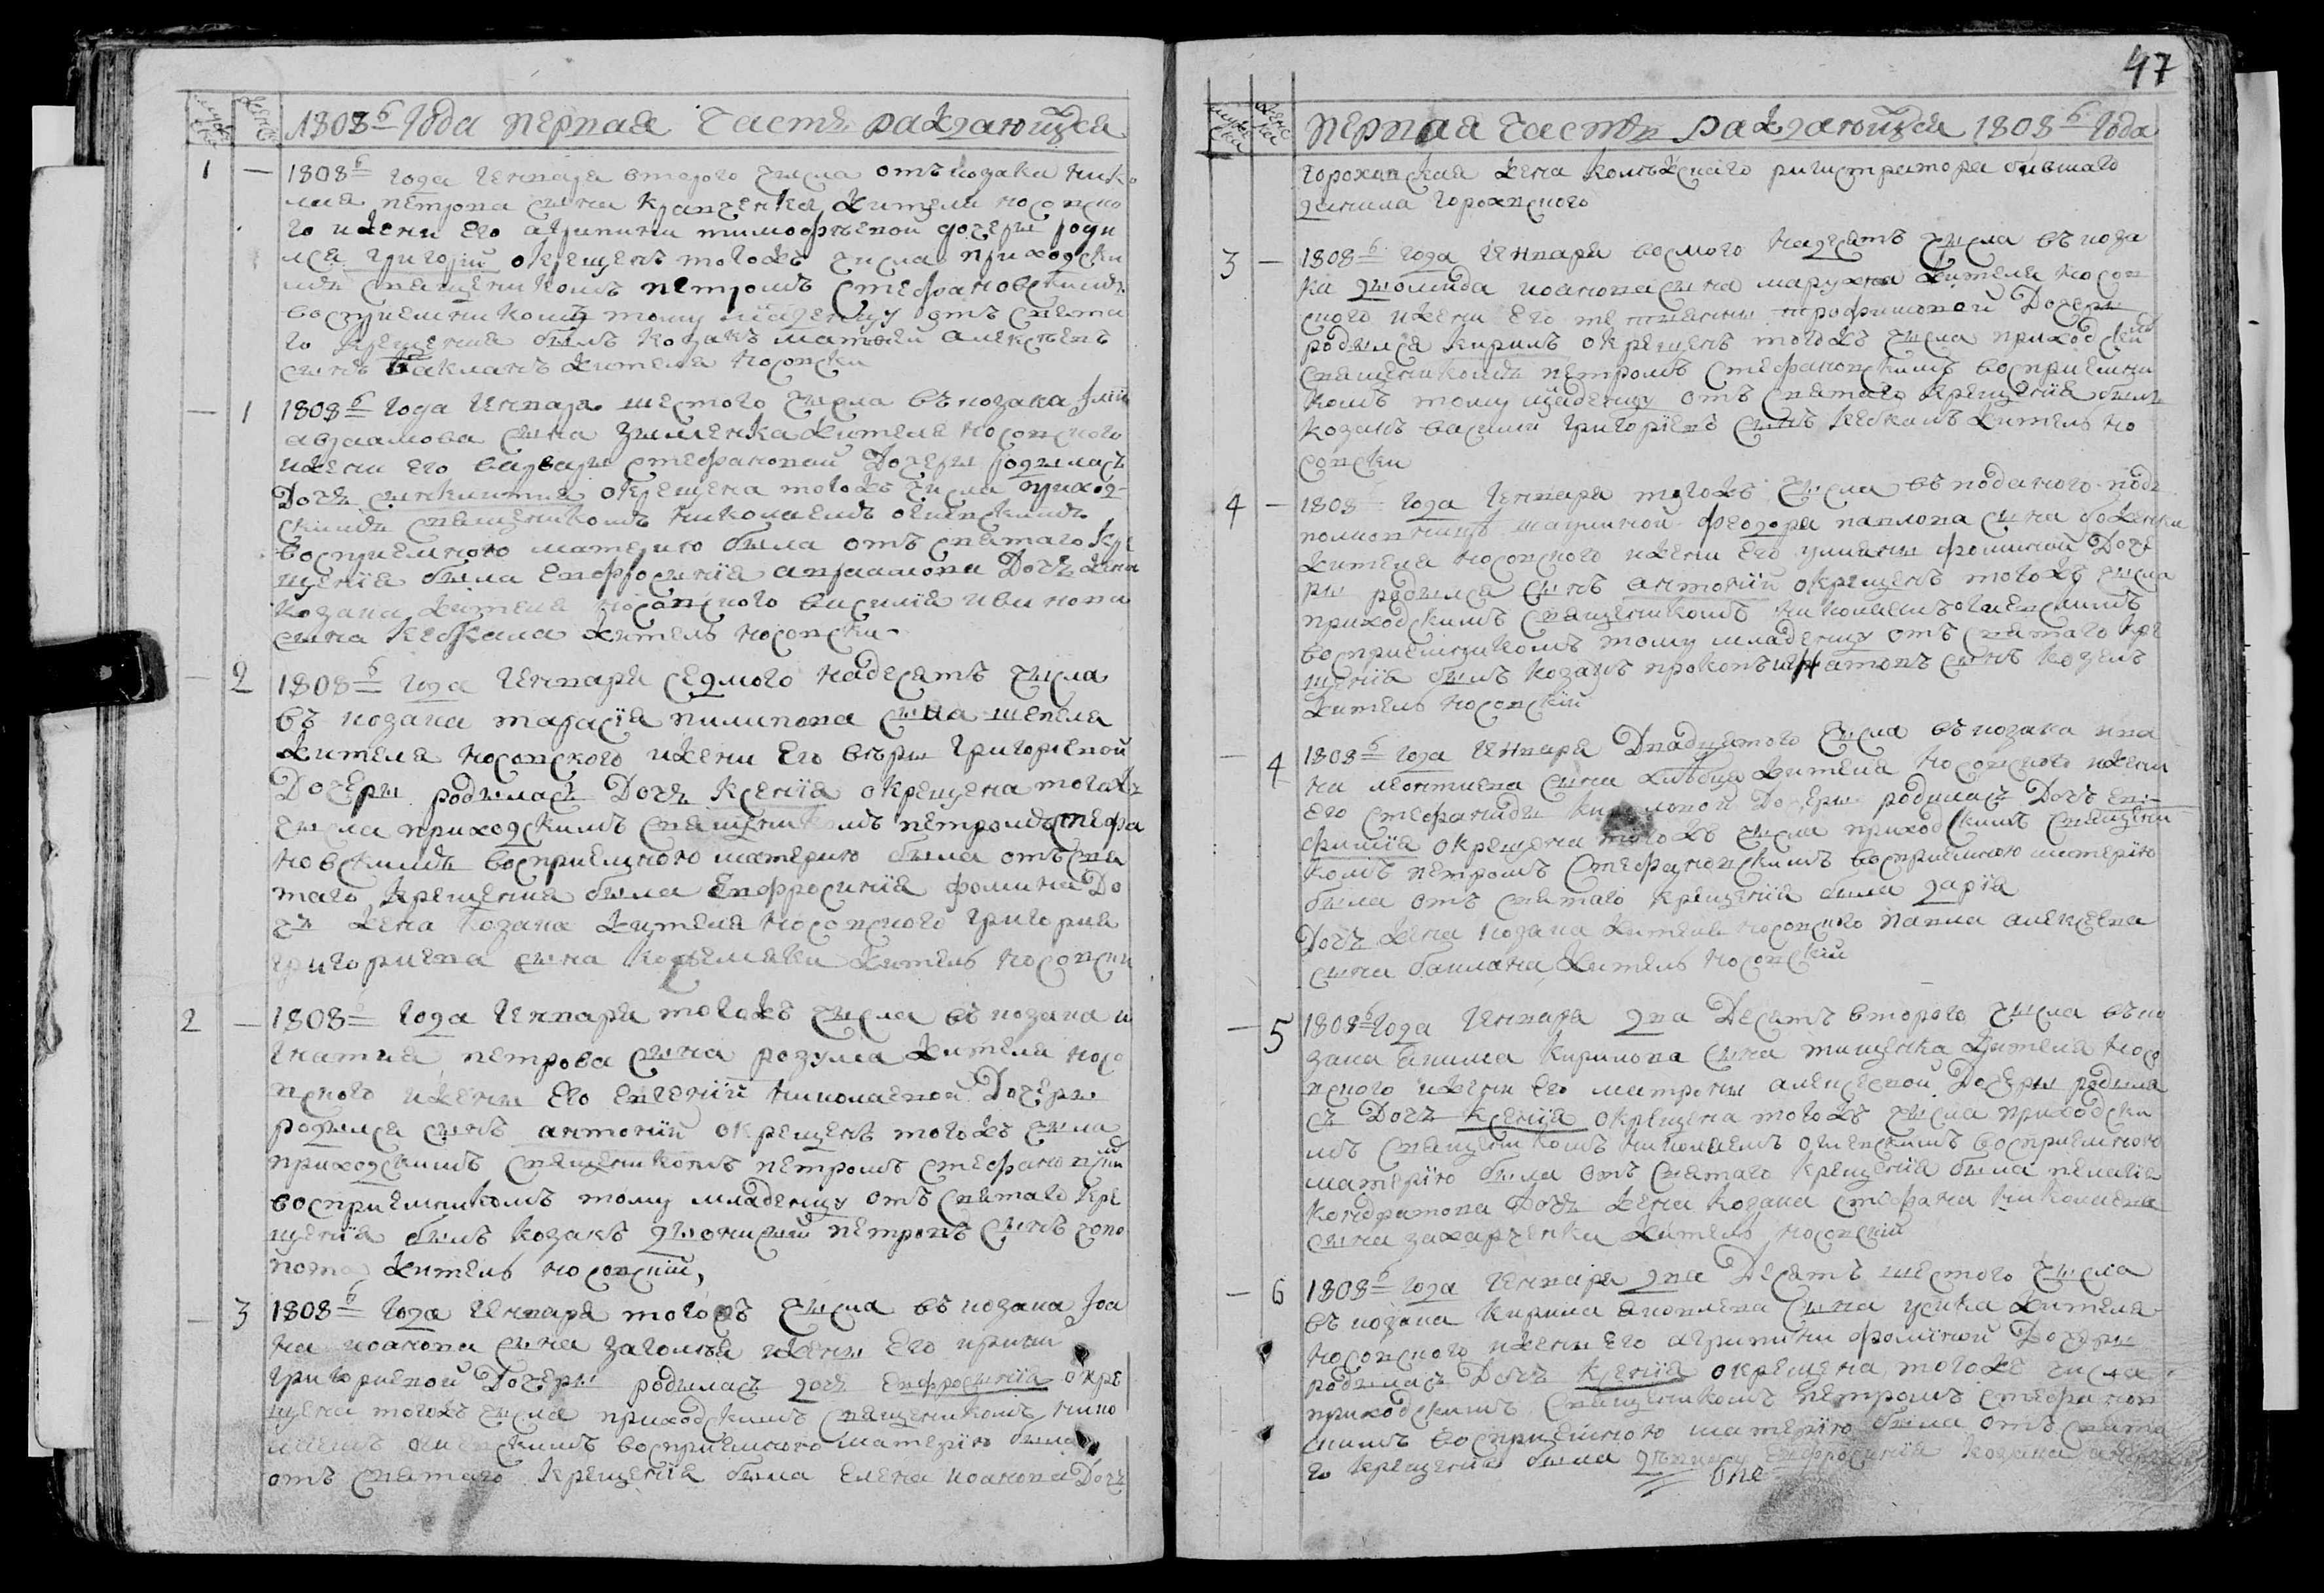 мужеска женска
1808го Года перпая Частъ раждаютцся
1 — 1808го года Генпаря второго числа отъ козака нико
лая петропа сина Крапченка жителя носопско
го ижени Его агрипини тимофѣепой дочери роди
лся григорій окрещенъ тогожъ числа приходски
мъ спященикомъ петромъ стефановскимъ
восприемникомъ тому младенцу отъ спята
го крещения былъ козакъ матвей алексѣепъ
синъ бакланъ жителя носопски
— 1 1808го года Генпаря шестого числа въ козака
авраамова сина зименка жителя носопского
ижени его варвари стефанопой Дочери родиласъ
Дочъ синклитиа окрещена тогожъ числа приход
скимъ спященикомъ николаемъ огиепскимъ
восприемною материю была отъ спятаго кре
щения была Епфросиния апраамопа Дочъ жена
козака жителя носопского василия иванопа
сина кебкала жителъ носопски
— 2 1808го года Генпаря седмого надесятъ числа
въ козака тарасія пилипопа сина шепеля
жителя носопского ижени Его вѣри григориепой
Дочери родиласъ Дочъ Ксения окрещена тогожъ
числа приходскимъ спященикомъ петромъ стефа
новскимъ восприемною материю была отъ спя
таго крещения была Епфросиния фомина До
чъ жена козака жителя носопского григория
григориепа сина кожемяки жителъ носопски
2 — 1808го года Генпаря тогожъ числа въ козака и
гнатия петрова сина розума жителя носо
пского ижени Его Епгении николаепой Дочери
родился синъ антоній окрещенъ тогожъ числа
приходскимъ спященикомъ петромъ стефанопским
восприемникомъ тому младенцу отъ спятаго кре
щения былъ козакъ дионисий петропъ синъ
жителъ носопский,
— 3 1808го года Генпаря тогожъ числа въ козака Іоа
на иоанопа сина заголѣя ижени Его ирини
григориепой Дочери родиласъ дочъ Епфросиния окре
щена тогожъ числа приходскимъ спященикомъ нико
лаемъ огиепскимъ восприемною материю была
отъ спятаго крещения была Елена иоанопа Дочъ
47
мужеска женска
перпая частъ раждаютцся 1808го года
горохпская жена колѣжского ригистратора бившаго
данила горохпского
3 — 1808го года Генпаря восмого надесятъ числа въ коза
ка диомида иоанопа сина жителя носоп
ского ижени Его трофимопой Дочери
родился кирилъ окрещенъ тогожъ числа приходский
спященикомъ петромъ стефанопскимъ восприемни
комъ тому младенцу отъ спятаго крещения былъ
козакъ василий григориепъ синъ кебкалъ жителъ но
сопски
4 — 1808го года Генпаря тогожъ числа въ поданого подъ
полкопницѣ феодора паплопа сина боженка
жителя носопского ижени Его улияни фоминой Доче
ри родился синъ антоній окрещенъ тогожъ числа
приходскимъ спященикомъ николаемъ огиепскимъ
восприемникомъ тому младенцу отъ спятаго кре
щения былъ козакъ прокопъ игнатопъ синъ козелъ
жителъ носопский
— 4 1808го года Генпаря Дпадцятого числа въ козака ипа
на леонтиепа сина жителя носопского ижени
Его стефаниди Дочери родиласъ Дочъ Еп
фимия окрещена тогожъ числа приходскимъ спящени
комъ петромъ стефанопскимъ восприемною материю
была отъ спятаго крещения была дария
Дочъ жена козака жителя носопского папла алексеепа
сина баклана жителъ носопский
— 5 1808го года Генпаря дпа Десятъ второго числа въ ко
зака якима кирилопа сина тищенка жителя носо
пского ижени Его матрони алексеепой Дочери родила
съ Дочъ Ксения окрещена тогожъ числа приходски
мъ спященикомъ николаемъ огиепскимъ восприемною
материю была отъ спятаго крещения была пелагия
кондратопа Дочъ жена козака стефана николаепа
сина захарченка жителъ носопский
— 6 1808го года Генпаря дпа Десятъ шестого числа
въ козака кирила якоплепа сина усика жителя
носопского ижени Его агрипини фоминой Дочери
родиласъ Дочъ Ксения окрещена тогожъ числа
приходскимъ спященикомъ петромъ стефаноп
скимъ восприемною материю была отъ спята
го крещения была Епфросиния козака